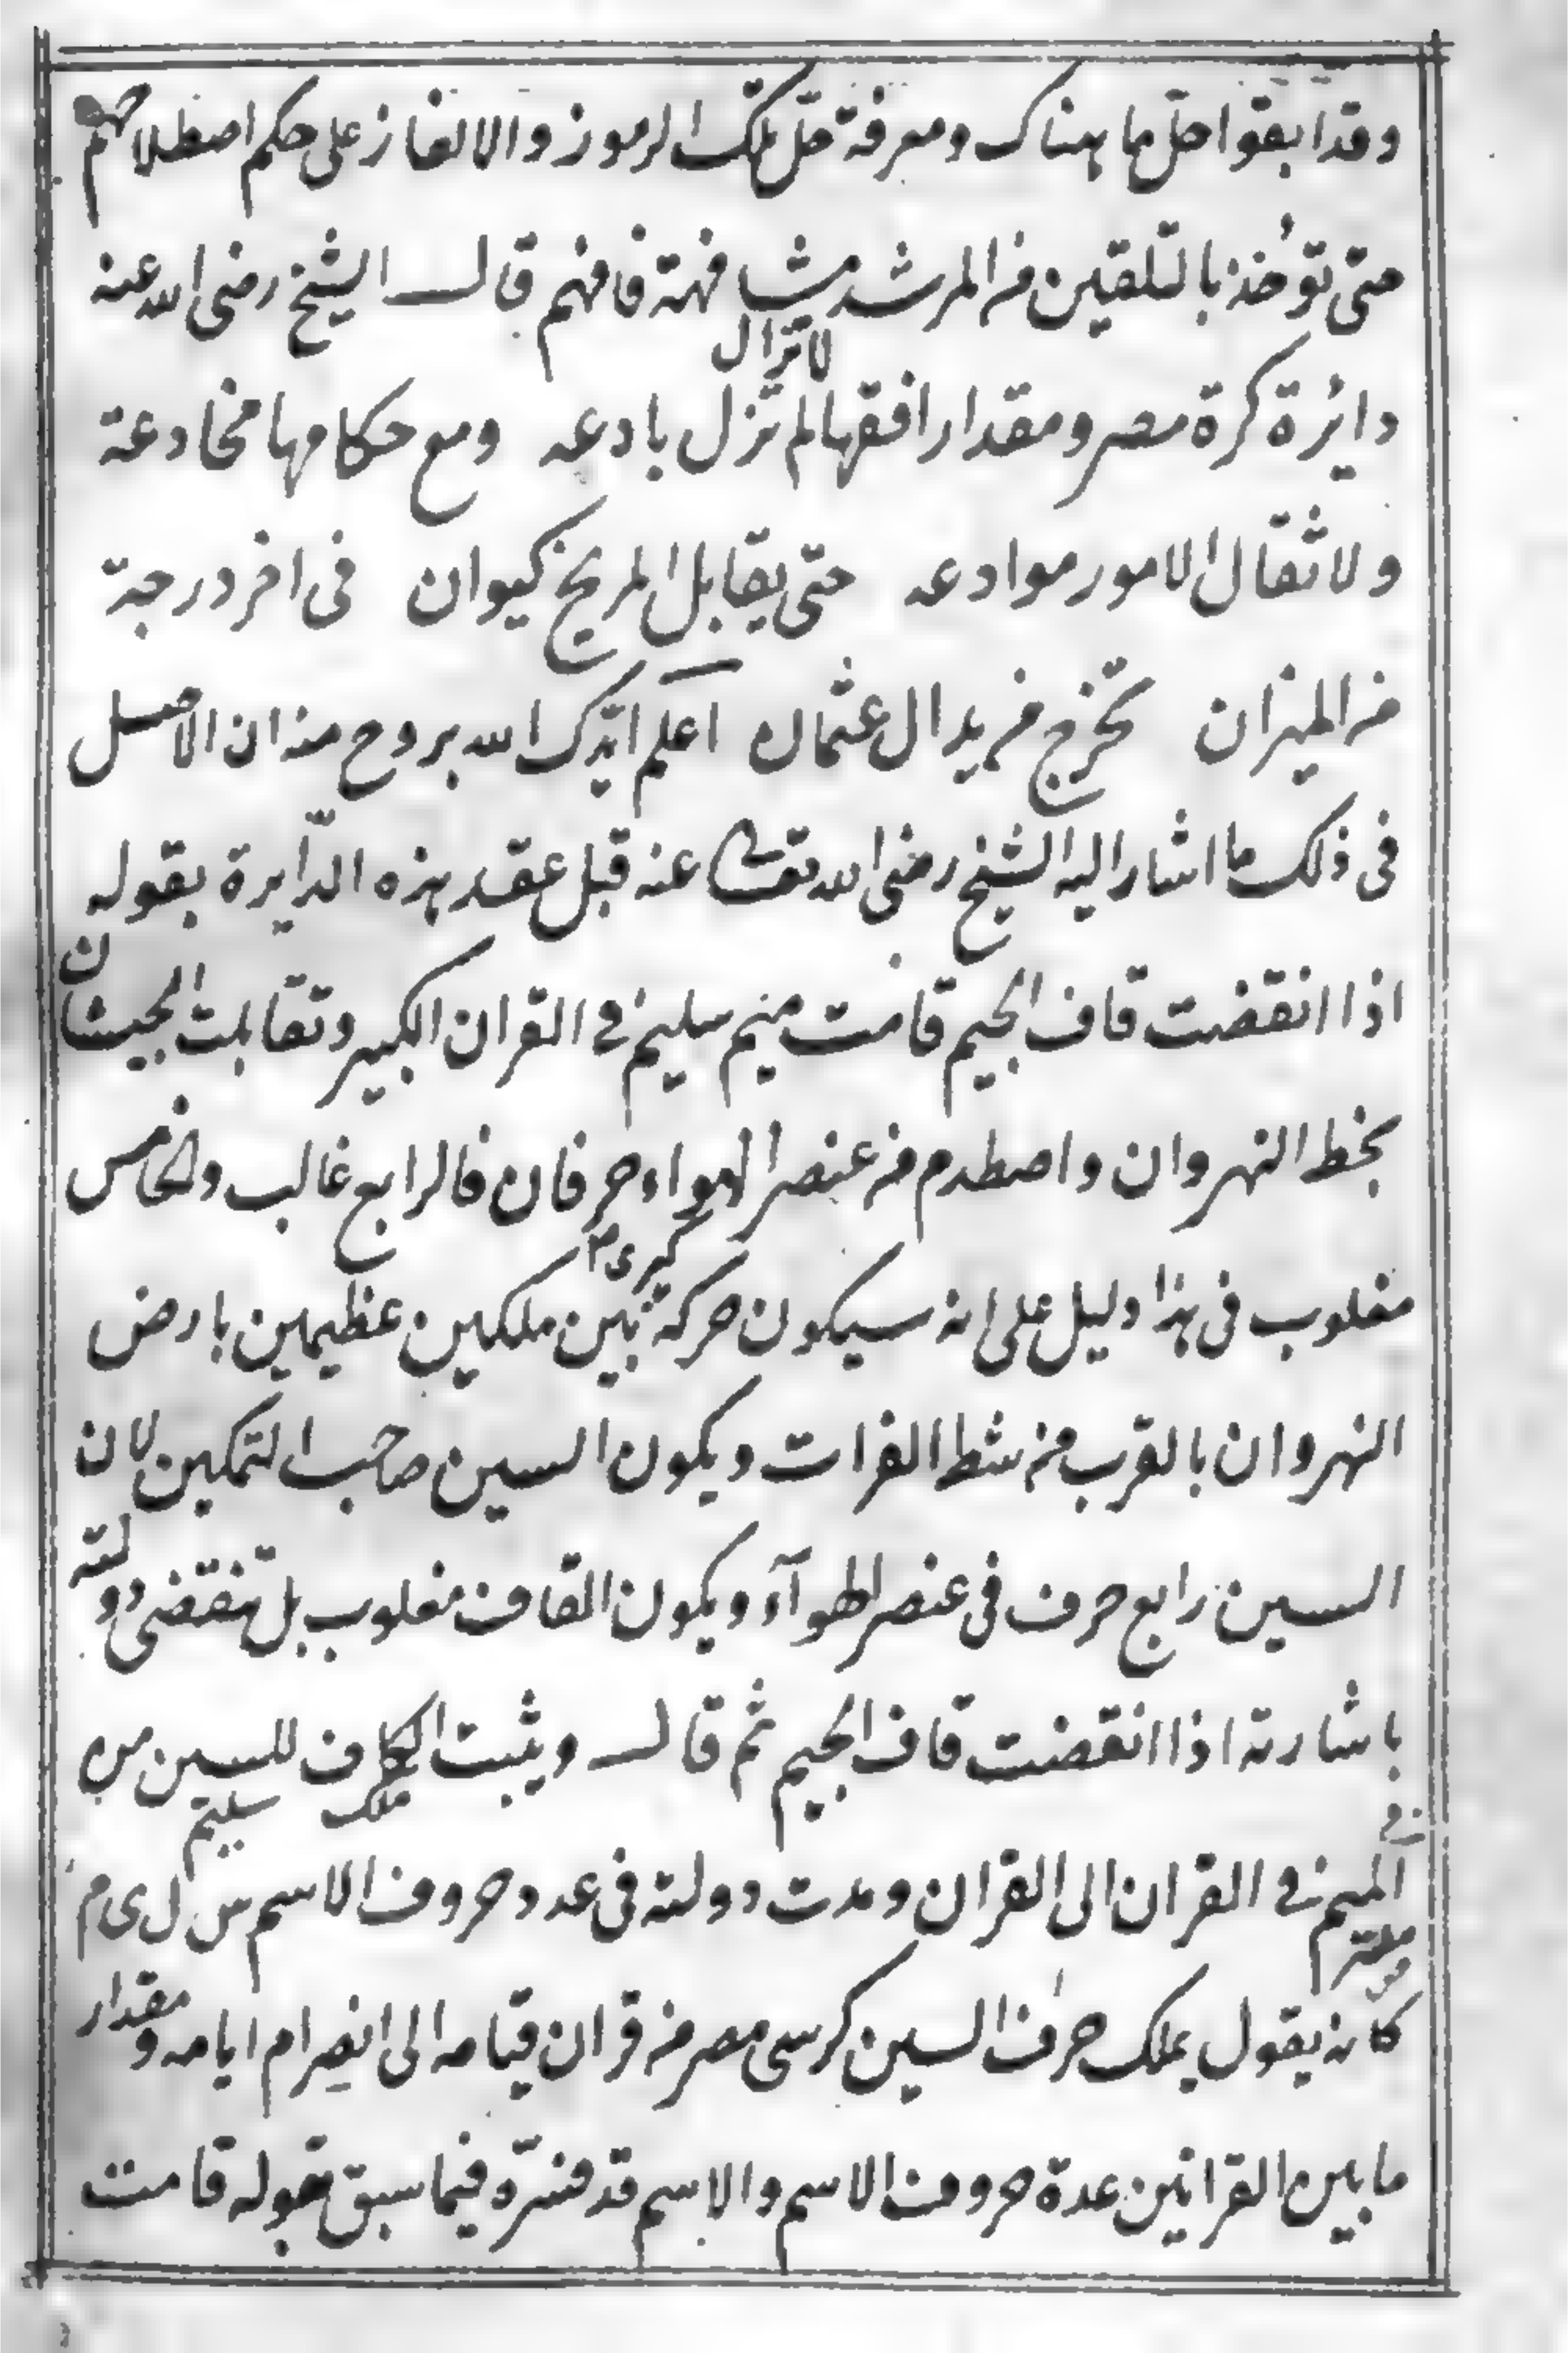 وقد ابقوا حلّ ما هناك ومعرفة حلّ تلك الرموز والالغاز على حكم اصطلاحهم
حتى تؤخذ بالتلقين من المرشد مشافهة فافهم قال الشيخ رضى الله عنه
لا تزال
دايرة كرة مصر ومقدار افقها لم تزل بادعه ومع حكامها مخادعة
ولا ثقال الامور موادعه حتى يقابل المريخ كيوان فى اخر درجة
من الميزان تخرج من يد ال عثمان اعلم ايدك الله بروح منه ان الاصل
فى ذلك ما اشار اليه الشيخ رضى الله تعالى عنه قبل عقد هذه الدّايرة بقوله
اذا انقضت قاف الجيم قامت ميم سليم فى القران الكبير وتقابلت الجيشان
بخط النهروان واصطدم من عنصر الهواء حرفان فالرابع غالب والخامس
كبرى
مغلوب فى هذا دليل على انه سيكون حركة بين ملكين عظيمين بارض
النهروان بالقرب من شط الفرات ويكون السين صاحب التمكين لان
السين رابع حرف فى عنصر الهوآء ويكون القاف مغلوب بل تنقضى دولته
باشارته اذا انقضت قاف الجيم ثم قال ويثبت الكاف للسين من
ملك سليم
الميم فى القران الى القران ومدت دولته فى عدد حروف الاسم س ل ى م
كانه يقول يملك حرف السين كرسى مصر من قران قيامه الى انصرام ايامه ومقدار
ما بين القرانين عدة حروف الاسم والاسم قد فسّره فيما سبق بقوله قامت